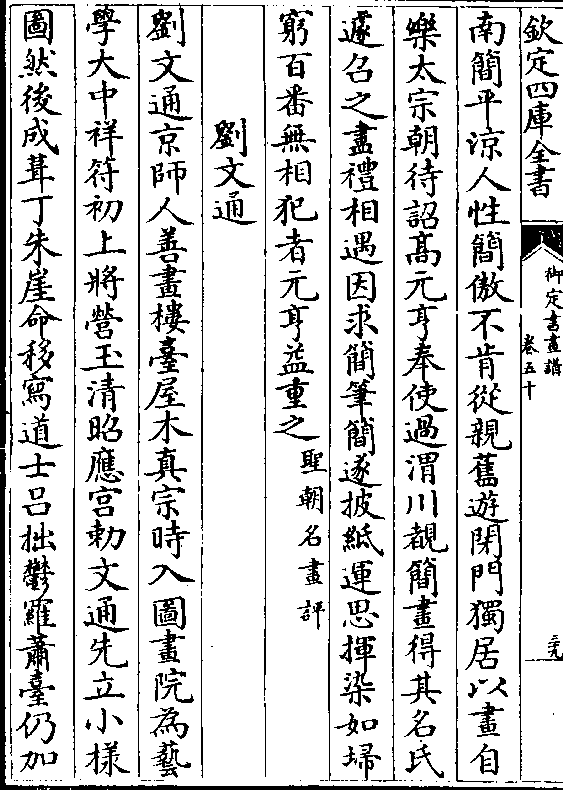 欽定四庫全書
御定書畫譜
卷五十
二十九
南簡平涼人性簡傲不肯從親舊遊閉門獨居以畫自
樂太宗朝待詔髙元亨奉使過渭川覩簡畫得其名氏
遽召之盡禮相遇因求簡筆簡遂披紙運思揮染如埽
窮百番無相犯者元亨益重之聖朝名畫評
劉文通
劉文通京師人善畫樓臺屋木真宗時入圖畫院為藝
學大中祥符初上將營玉清昭應宫勅文通先立小様
圖然後成葺丁朱崖命移寫道士吕拙鬱羅蕭臺仍加